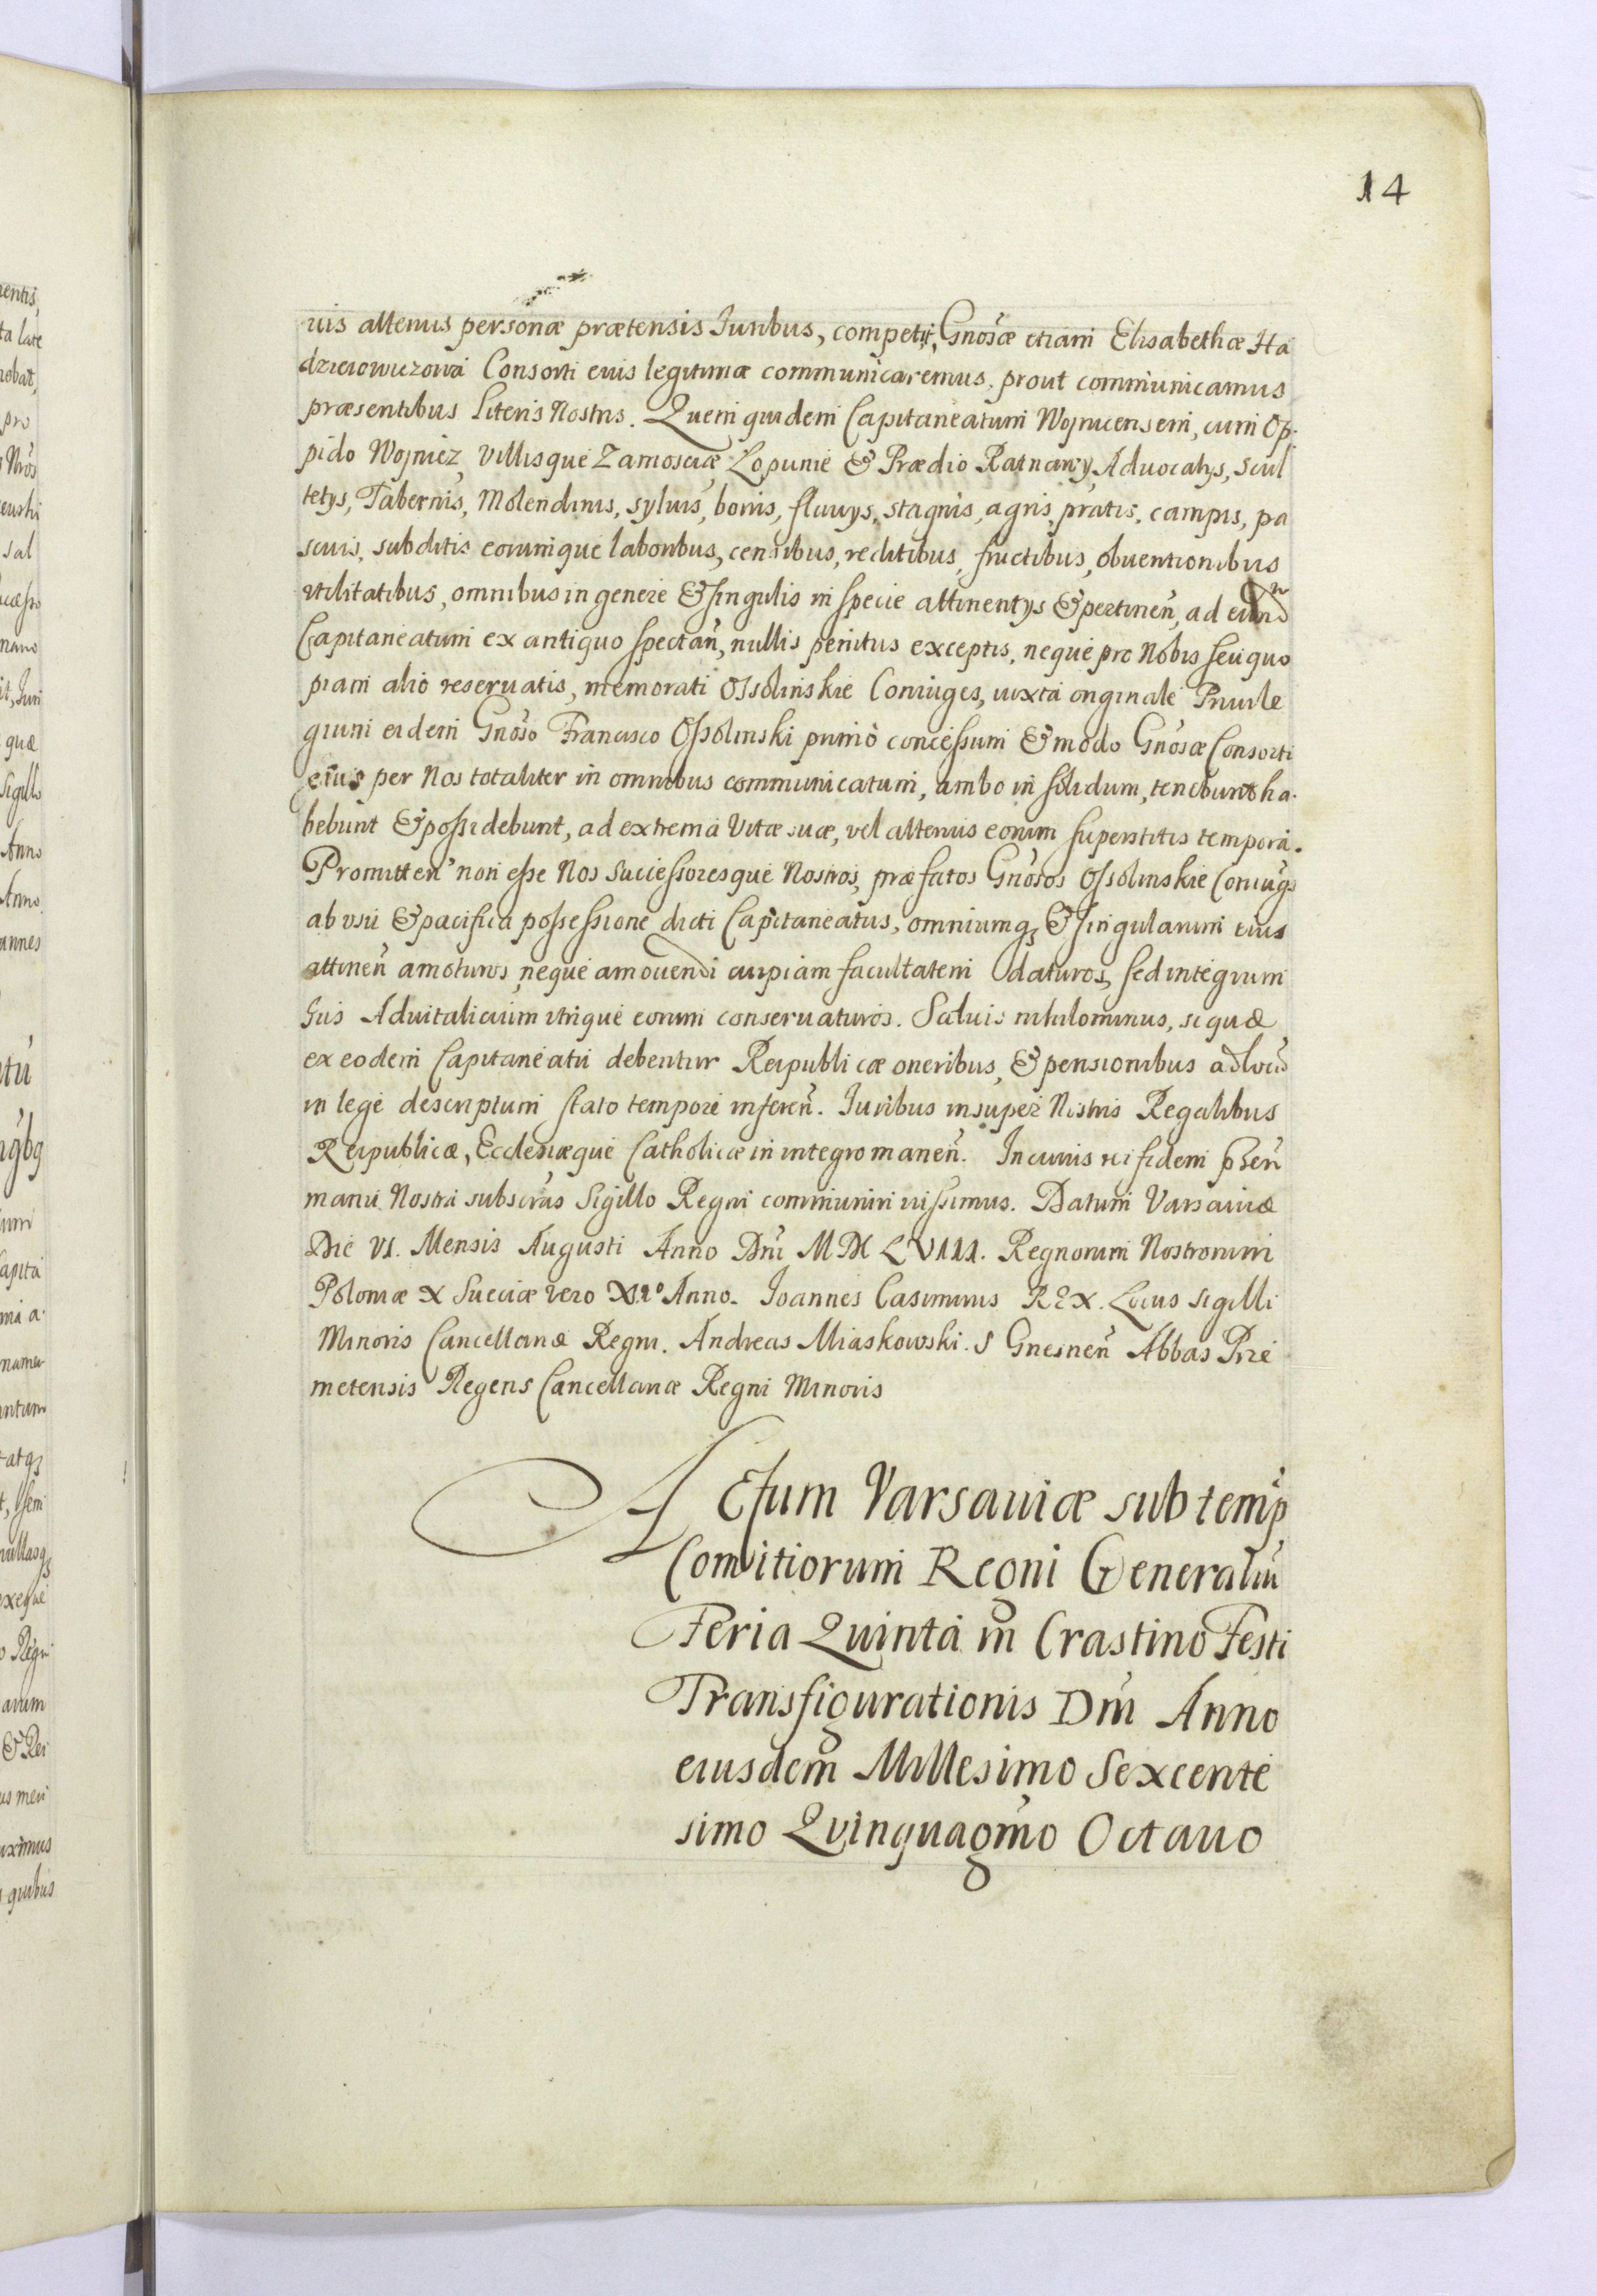 14
uis alterius personæ prætensis Iuribus, competīt, Gnōsæ etiam Elisabethæ Ha
dzieiowiczowa Consorti eius legitimæ communicaremus, prout communicamus
præsentibus literis Nostris. Quem quidem Capitaneatum Woynicensem, cum Op-
pido Woynicz, Villisque Zamoscie Lopunie & Prædio Ratnawy, Aduocatys, scul
tetys, Tabernis, Molendinis, syluis, boris, fluuys, stagnis, agris, pratis, campis, pa
scuis, subditis eorumque laboribus, censibus, reditibus, fructibus, obuentionibus
vtilitatibus, omnibus in genere & singulis in specie attinentys & pertineñ, ad eund
Capitaneatum ex antiquo spectañ, nullis penitus exceptis, neque pro Nobis seu quo
piam alio reseruatis, memorati Ossolinskie Coniuges, iuxta originale Priuile
gium eidem Gnōso Francisco Ossolinski primo concessum & modo Gnōsæ Consorti
eius per Nos totaliter in omnibus communicatum, ambo in solidum, tenebunt ha-
bebunt & possidebunt, ad extrema Vitæ suæ, vel alterius eorum superstitis tempora.
Promitteñ non esse Nos Successoresque Nostros, præfatos Gnōsos Ossolinskie Coniugs
ab vsu & pacifica possessione dicti Capitaneatus, omniumq, & singularum eius
attineñ amoturos, neque amouendi cuipiam facultatem daturos, sed integrum
Ius Aduitalicium vtrique eorum conseruaturos. Saluis nihilominus, si quæ
ex eodem Capitaneatu debentur Reipublicæ oneribus, & pensionibus ad locū
in lege descriptum stato tempore infereñ. Iuribus insuper Nostris Regalibus
Reipublicæ, Ecclesiæque Catholicæ in integro maneñ. In cuius rei fidem pñseñ
manu Nostra subscras Sigillo Regni communiri iussimus. Datum Varsauiæ
Die VI. Mensis Augusti Anno Dni M DC LVIII. Regnorum Nostrorum
Poloniæ X Sueciæ vero XIº Anno. Ioannes Casimirus REX. Locus sigilli
Minoris Cancellariæ Regni. Andreas Miaskowski. S Gnesneñ Abbas Prze
metensis Regens Cancellariæ Regni Minoris
Actum Varsauiæ sub temp
Comitiorum Regni Generaliū
Feria Quinta in Crastino Festi
Transfigurationis Dni Anno
eiusdem Millesimo Sexcente
simo Quinquagmo Octauo